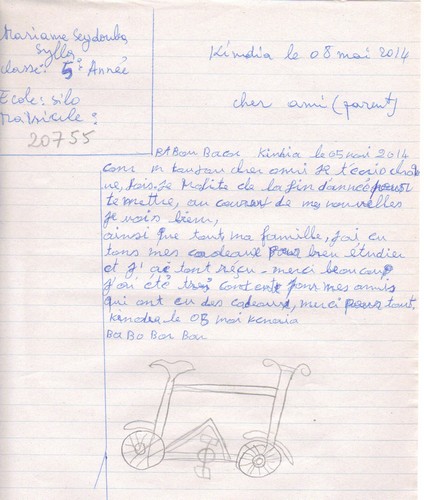 Mariame Seydouba
Sylla
classe: 5e Année
Ecole: silo
Matricule:
20755
Kindia le 08 mai 2014
cher ami (parent)
Kindia le 05 mai 2014
cher ami je t'écris
de la fin d'année pour
te mettre, au courant de mes nouvelles
je vais bien,
ainsi que tout ma famille, j'ai eu
tons mes cadeaux pour bien étudier
et j'ai tout reçu - merci beaucoup
j'ai été très contente mes amis
qui ont eu des cadeaux, merci pour tout.
kindia le 08 mai